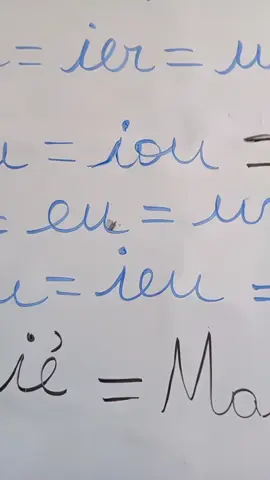 = ier =
= iou =
= eu =
= ieu =
ié = Ma